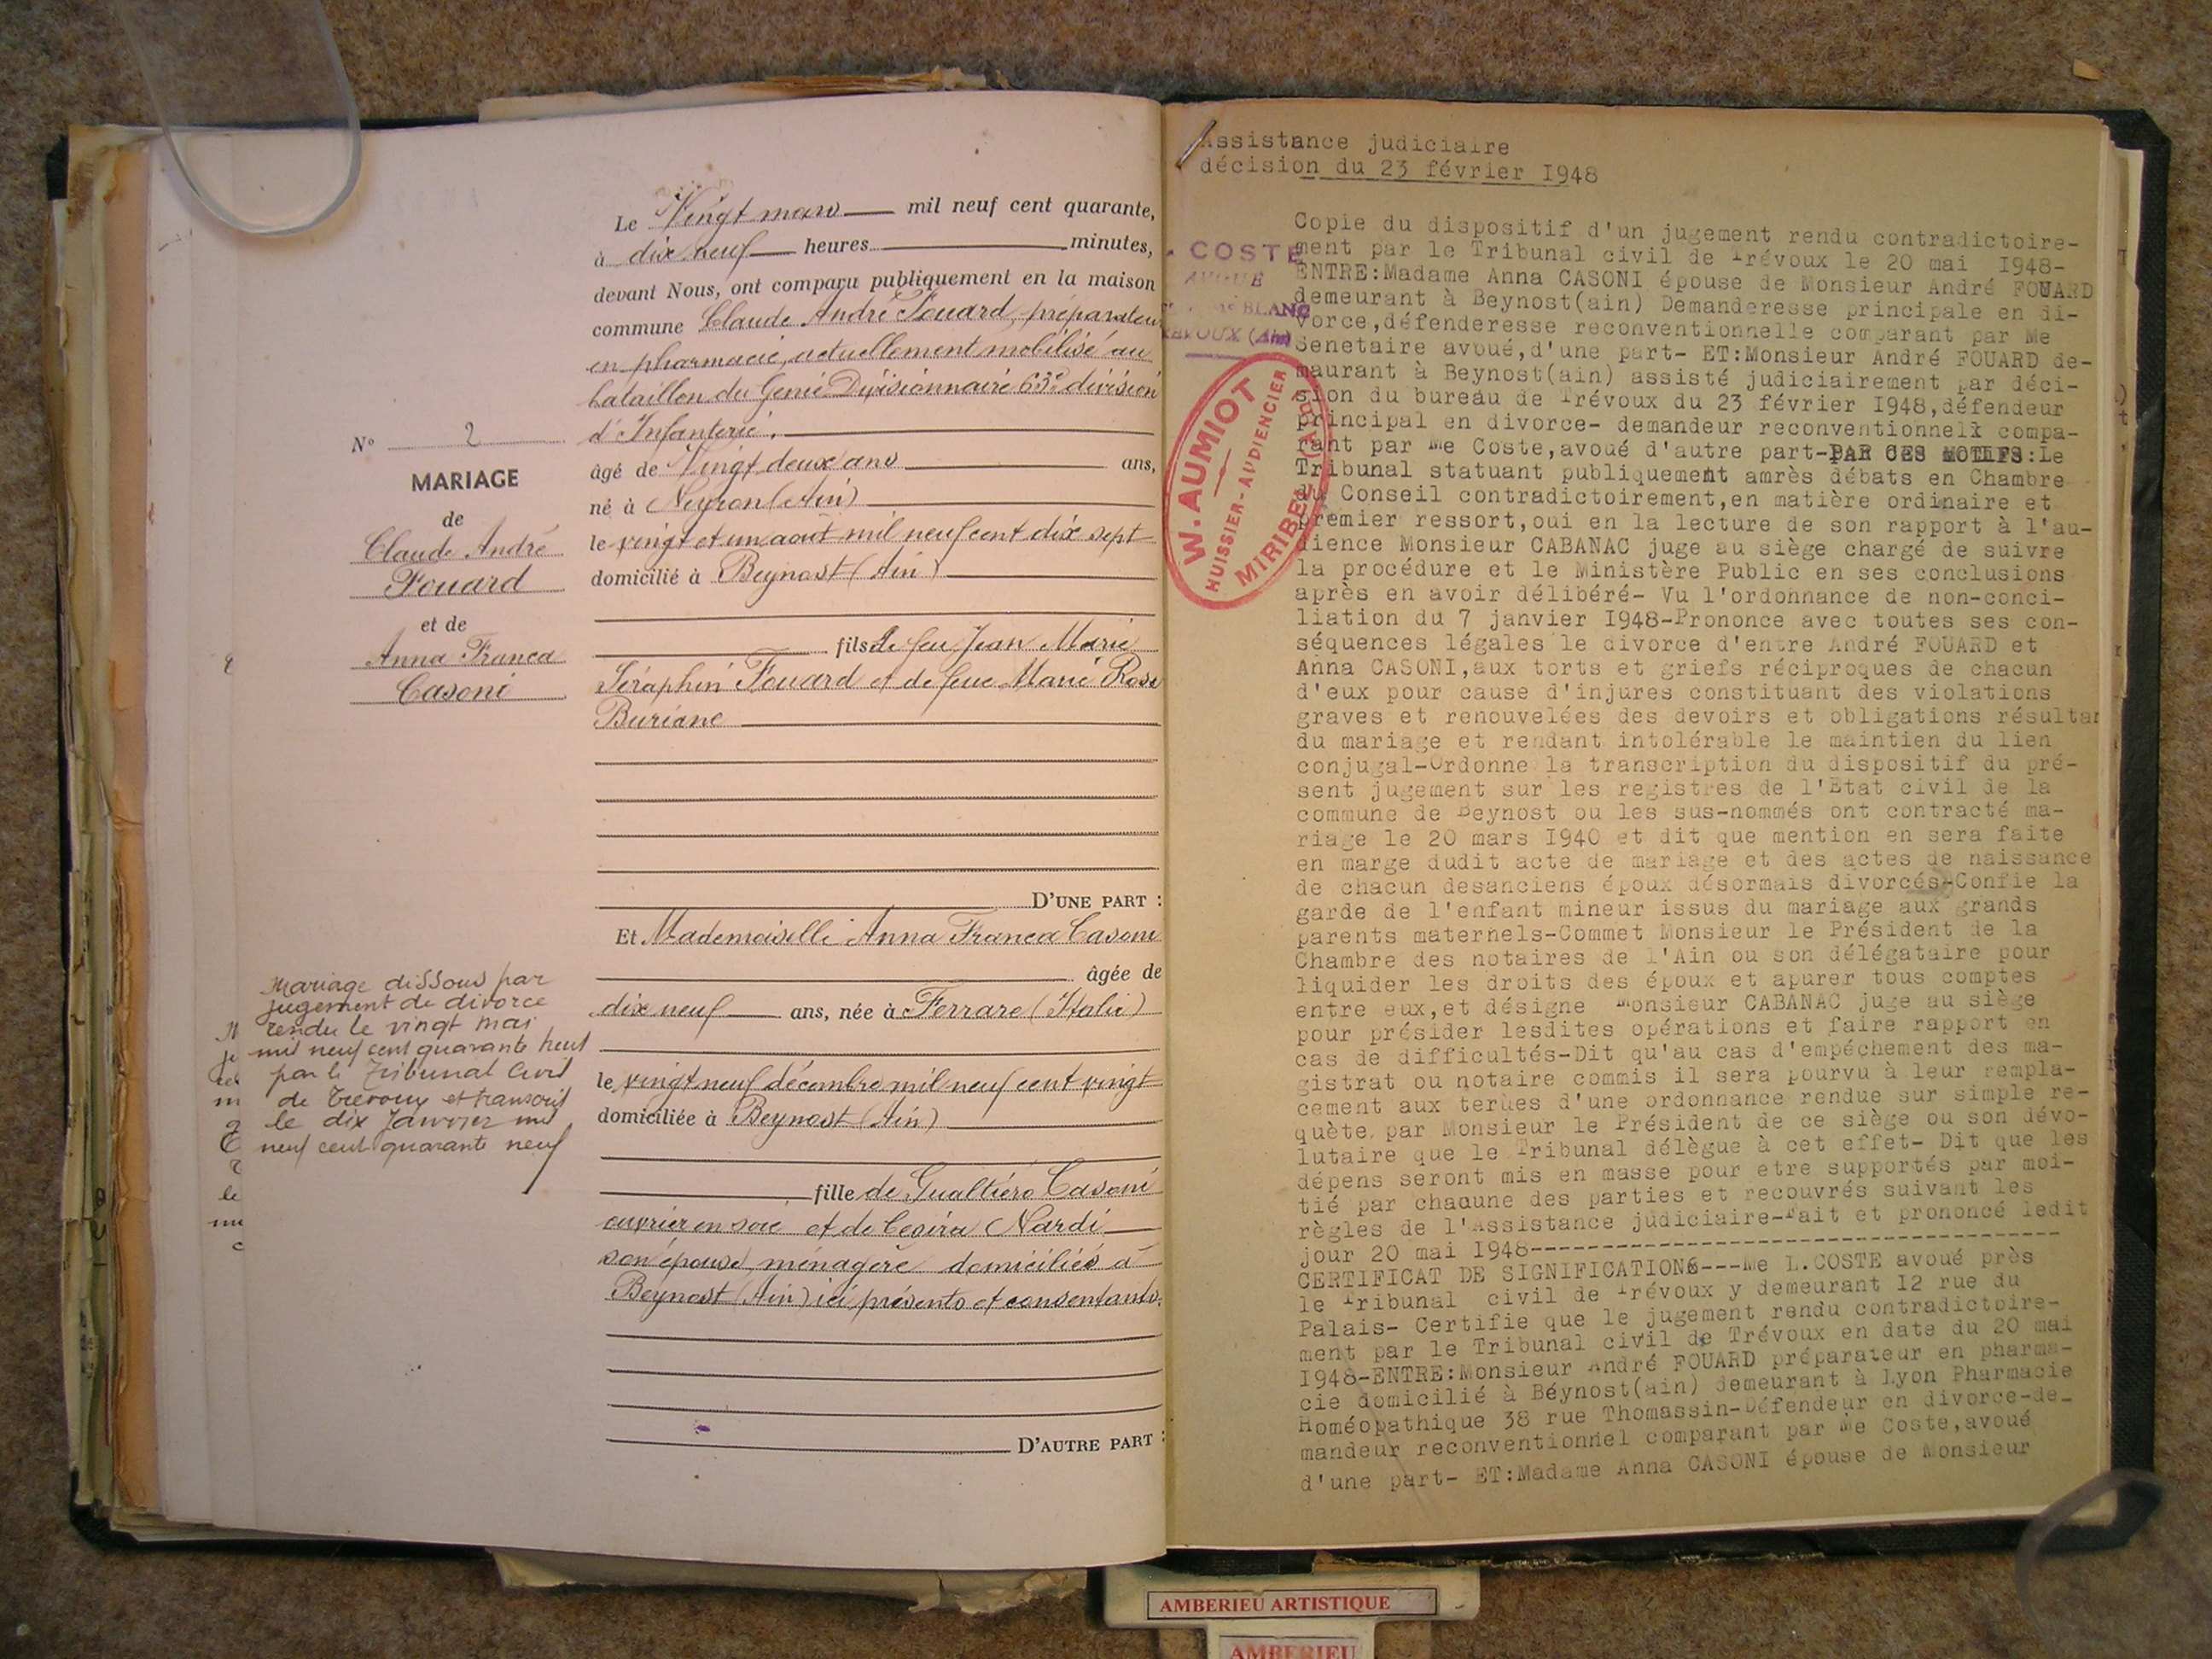 Le Vingt mars mil neuf cent quarante,
à dix neuf heures minutes,
devant Nous, ont comparu publiquement en la maison
commune Claude André Fouard, préparateur
en pharmacie, actuellement mobilisé au
bataillon du Génie Divisionnaire 63e division
d'Infanterie.
âgé de Vingt deux ans ans,
né à Neyron (Ain)
le vingt et un août mil neuf cent dix sept
domicilié à Beynost (Ain)
fils de feu Jean Marie
Séraphin Fouard et de feue Marie Rose
Buriane
D'UNE PART :
Et Mademoiselle Anna Franca Casoni
âgée de
dix neuf ans, née à Ferrare (Italie)
le vingt neuf décembre mil neuf cent vingt
domiciliée à Beynost (Ain)
fille de Gualtiero Casoni
ouvrier en soie et de Cesira Nardi
son épouse, ménagère domiciliés à
Beynost (Ain) ici présents et consentants.
D'AUTRE PART :
N° 2
MARIAGE
de
Claude André
Fouard
et de
Anna Franca
Casoni
Mariage dissous par
jugement de divorce
rendu le vingt mai
mil neuf cent quarante huit
par le Tribunal Civil
de Trévoux et transcrit
le dix Janvier mil
neuf cent quarante neuf
Assistance judiciaire
décision du 23 février 1948
COSTE
BLANC
TREVOUX (Ain)
W. AUMIOT
HUISSIER-AUDIENCIER
MIRIBEL
Copie du dispositif d'un jugement rendu contradictoire-
ment par le Tribunal civil de Trévoux le 20 mai 1948-
ENTRE:Madame Anna CASONI épouse de Monsieur André FOUARD
demeurant à Beynost(ain) Demanderesse principale en di-
vorce,défenderesse reconventionnelle comparant par Me
Senetaire avoué,d'une part- ET:Monsieur André FOUARD de-
maurant à Beynost(ain) assisté judiciairement par déci-
sion du bureau de Trévoux du 23 février 1948,défendeur
principal en divorce- demandeur reconventionnelx compa-
rant par Me Coste,avoué d'autre part-PAR CES MOTIFS:Le
Tribunal statuant publiquement amrès débats en Chambre
du Conseil contradictoirement,en matière ordinaire et
premier ressort,oui en la lecture de son rapport à l'au-
dience Monsieur CABANAC juge au siège chargé de suivre
la procédure et le Ministère Public en ses conclusions
après en avoir délibéré- Vu l'ordonnance de non-conci-
liation du 7 janvier 1948-Prononce avec toutes ses con-
séquences légales le divorce d'entre André FOUARD et
Anna CASONI,aux torts et griefs réciproques de chacun
d'eux pour cause d'injures constituant des violations
graves et renouvelées des devoirs et obligations résultan
du mariage et rendant intolérable le maintien du lien
conjugal-Ordonne la transcription du dispositif du pré-
sent jugement sur les registres de l'Etat civil de la
commune de Beynost ou les sus-nommés ont contracté ma-
riage le 20 mars 1940 et dit que mention en sera faite
en marge dudit acte de mariage et des actes de naissance
de chacun desanciens époux désormais divorcés-Confie la
garde de l'enfant mineur issus du mariage aux grands
parents maternels-Commet Monsieur le Président de la
Chambre des notaires de l'Ain ou son délégataire pour
liquider les droits des époux et apurer tous comptes
entre eux,et désigne Monsieur CABANAC juge au siège
pour présider lesdites opérations et faire rapport en
cas de difficultés-Dit qu'au cas d'empéchement des ma-
gistrat ou notaire commis il sera pourvu à leur rempla-
cement aux termes d'une ordonnance rendue sur simple re-
quète par Monsieur le Président de ce siège ou son dévo-
lutaire que le Tribunal délègue à cet effet- Dit que les
dépens seront mis en masse pour etre supportés par moi-
tié par chacune des parties et recouvrés suivant les
règles de l'Assistance judiciaire-Fait et prononcé ledit
jour 20 mai 1948-----------------------------------
CERTIFICAT DE SIGNIFICATIONS---Me L.COSTE avoué près
le Tribunal civil de Trévoux y demeurant 12 rue du
Palais- Certifie que le jugement rendu contradictoire-
ment par le Tribunal civil de Trévoux en date du 20 mai
1948-ENTRE:Monsieur André FOUARD préparateur en pharma-
cie domicilié à Béynost(ain) demeurant à Lyon Pharmacie
Homéopathique 38 rue Thomassin-Défendeur en divorce-de-
mandeur reconventionnel comparant par Me Coste,avoué
d'une part- ET:Madame Anna CASONI épouse de Monsieur
AMBERIEU ARTISTIQUE
AMBERIEU